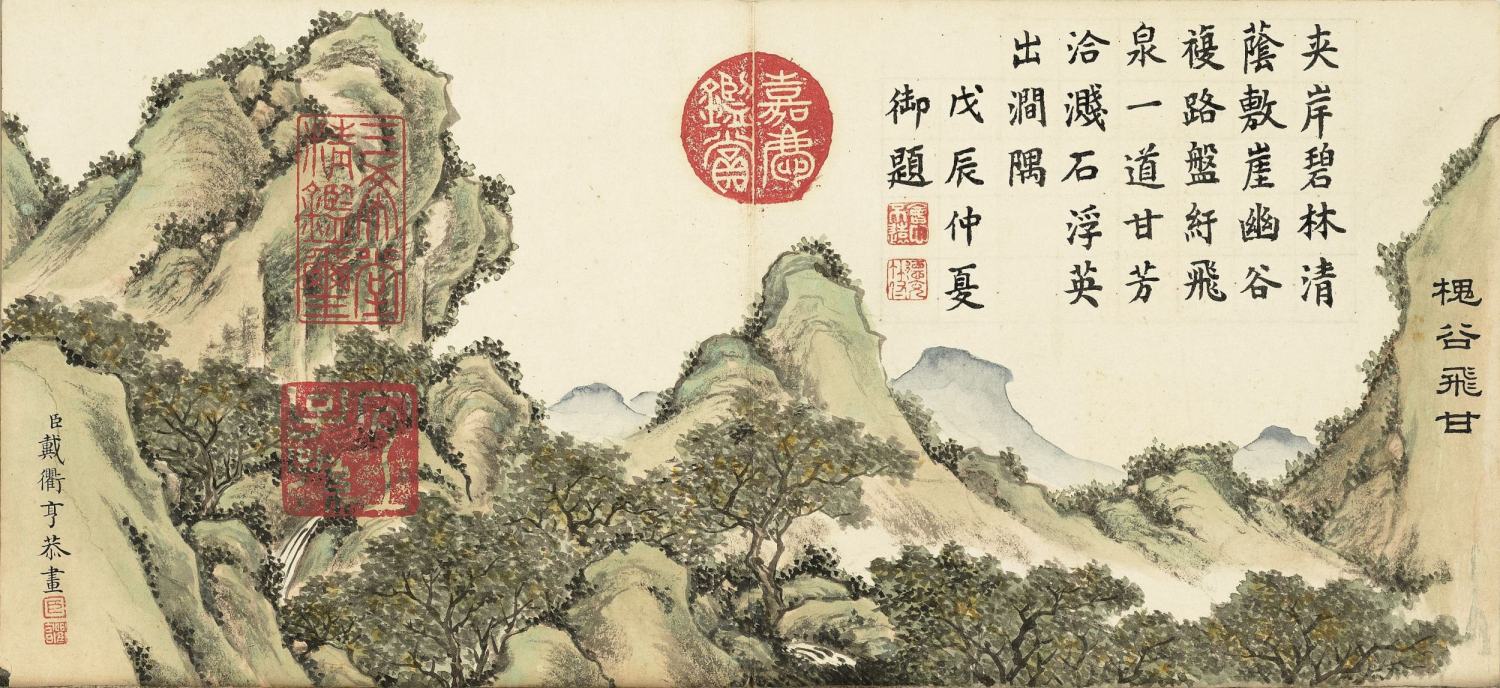 槐谷飛甘
夾岸碧林清
蔭敷崖幽谷
複路盤紆飛
泉一道甘芳
洽濺石浮英
出澗隅
戊辰仲夏
御題
嘉慶
鑑賞
三希堂
精鑑璽
宜子
孫
臣戴衢亨恭畫